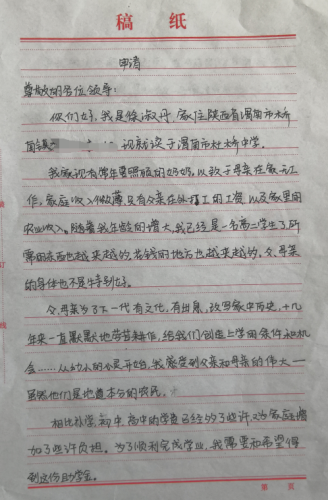 稿 纸
申请
尊敬的各位领导：
你们好，我是徐淑丹，家住陕西省渭南市大桥
镇 现就读于渭南市杜桥中学。
我家现有常年要照顾的奶奶，以致于母亲在家工
作，家庭收入微薄只有父亲在外打工的工资以及家里的
农业收入。随着我年龄的增大，我已经是一名高三学生了，所
需用的东西也越来越多的，花钱的地方也越来越多的。父、母亲
的身体也不是特别好。
父、母亲为了下一代有文化，有出息，改写家中历史，十几
年来一直默默地劳苦耕作，给我们创造上学条件和机
会……从幼小的心灵开始，我感受到父亲和母亲的伟大一
虽然他们是地道本分的农民。
相比小学，初中，高中的学费已经多了些许，又为家庭增
加了些许负担。为了顺利完成学业，我需要和希望得
到这份助学金。
第 页